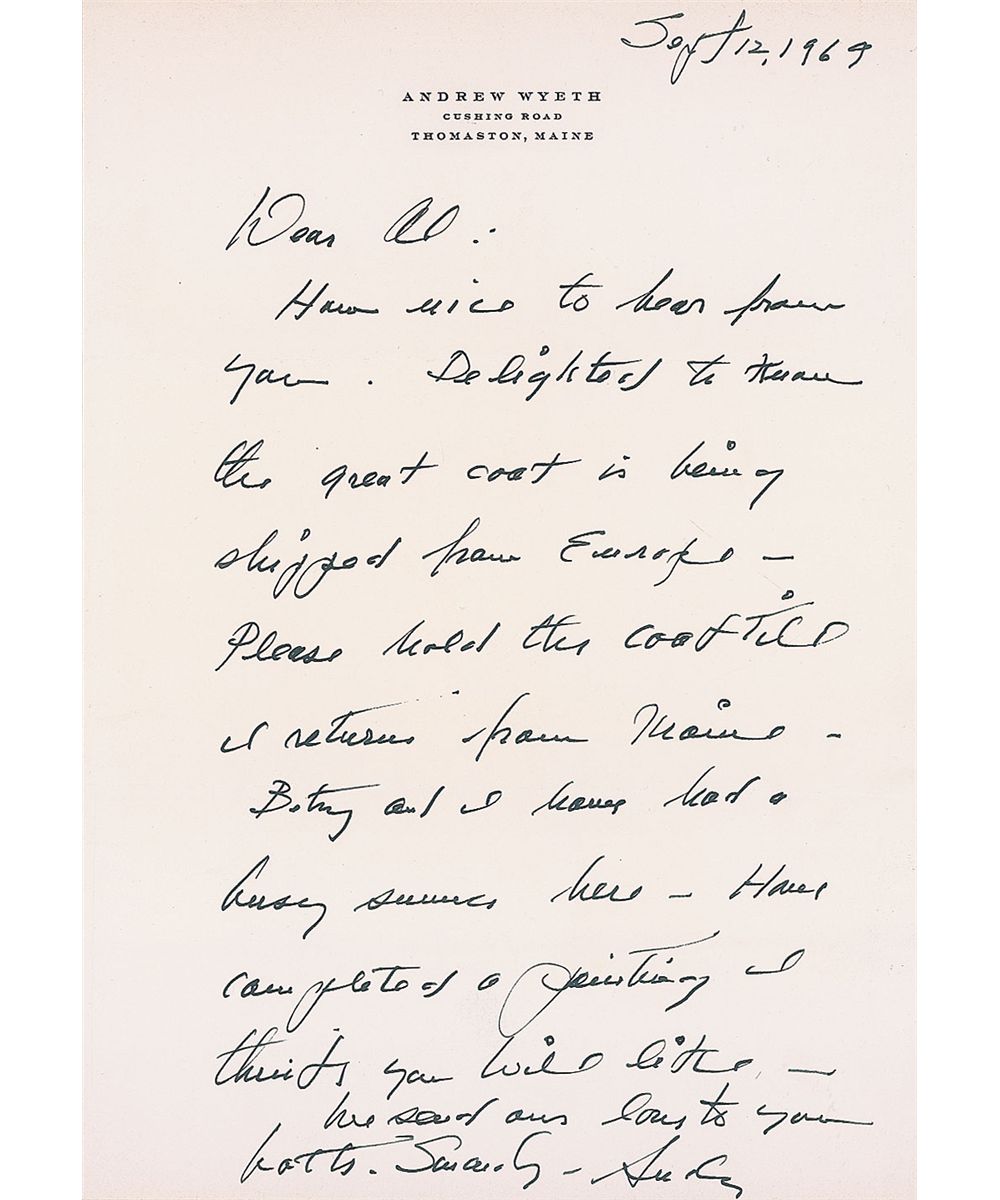 Sept 12, 1969
ANDREW WYETH
CUSHING ROAD
THOMASTON, MAINE
Dear Al :
How nice to hear from
you . Delighted to know
the great coat is being
shipped from Europe —
Please hold the coat till
I return from Maine -
Betsy and I have had a
busy summer here — Have
completed a painting I
think you will like —
We send our love to you
both. Sincerely - Andy